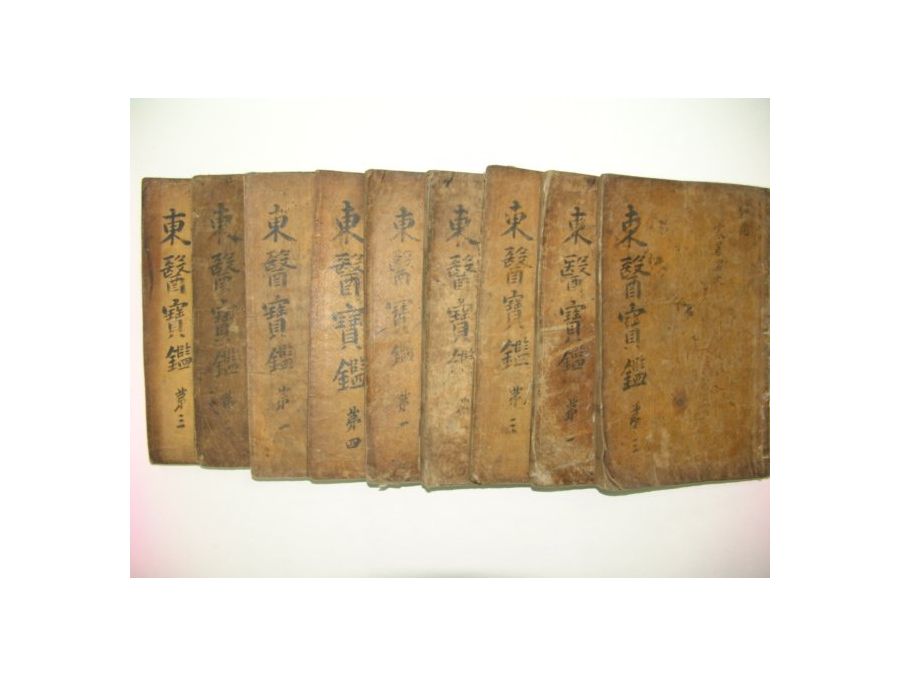 東醫寶鑑 第三
東醫寶鑑 第
東醫寶鑑 第一
東醫寶鑑 第四
東醫寶鑑 第一
東醫寶鑑
東醫寶鑑 第三
東醫寶鑑 第一
東醫寶鑑 第三